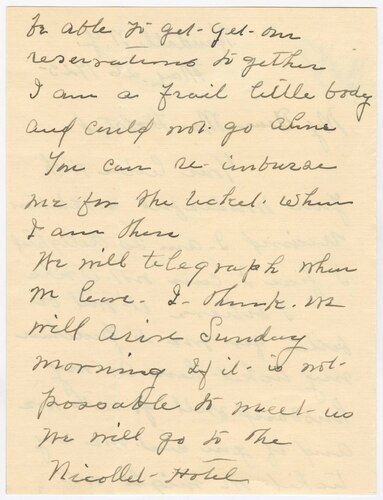 be able to get- get- our
reservations together
I am a frail little body
and could not go alone
You can re imburse
me for the ticket when
I am there
We will telegraph when
we leave. I think we
will arive Sunday
morning If it is not
possable to meet us
we will go to the
Nicollet Hotel